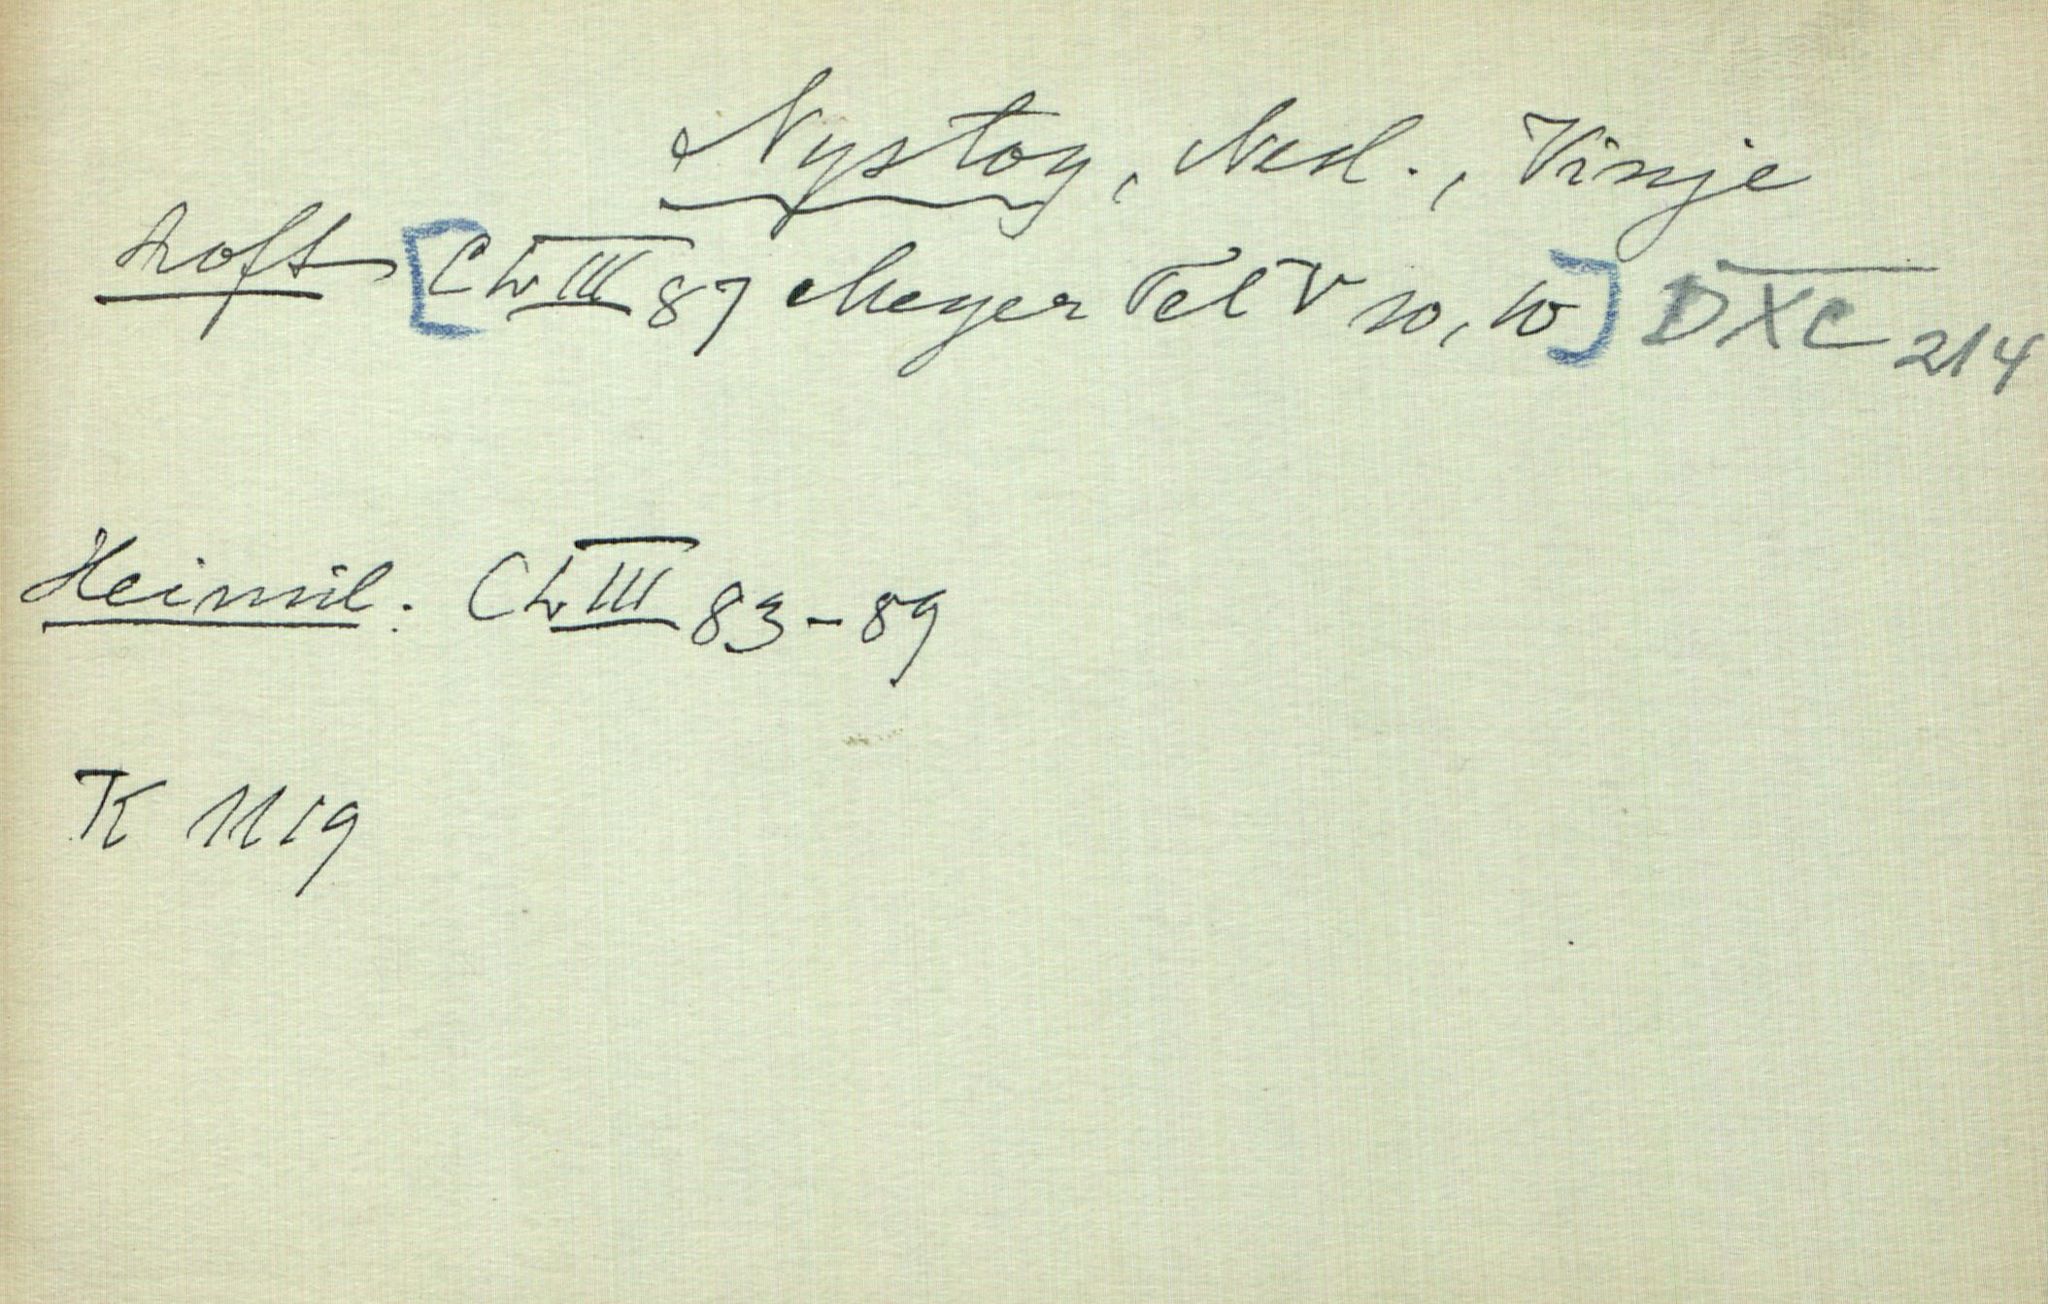 Nystog, Ned., Vinje
Loft [Ch III 87 Meyer Tel V 10, 10] D XC 214
Heimil. Ch III 83-89
K 1119